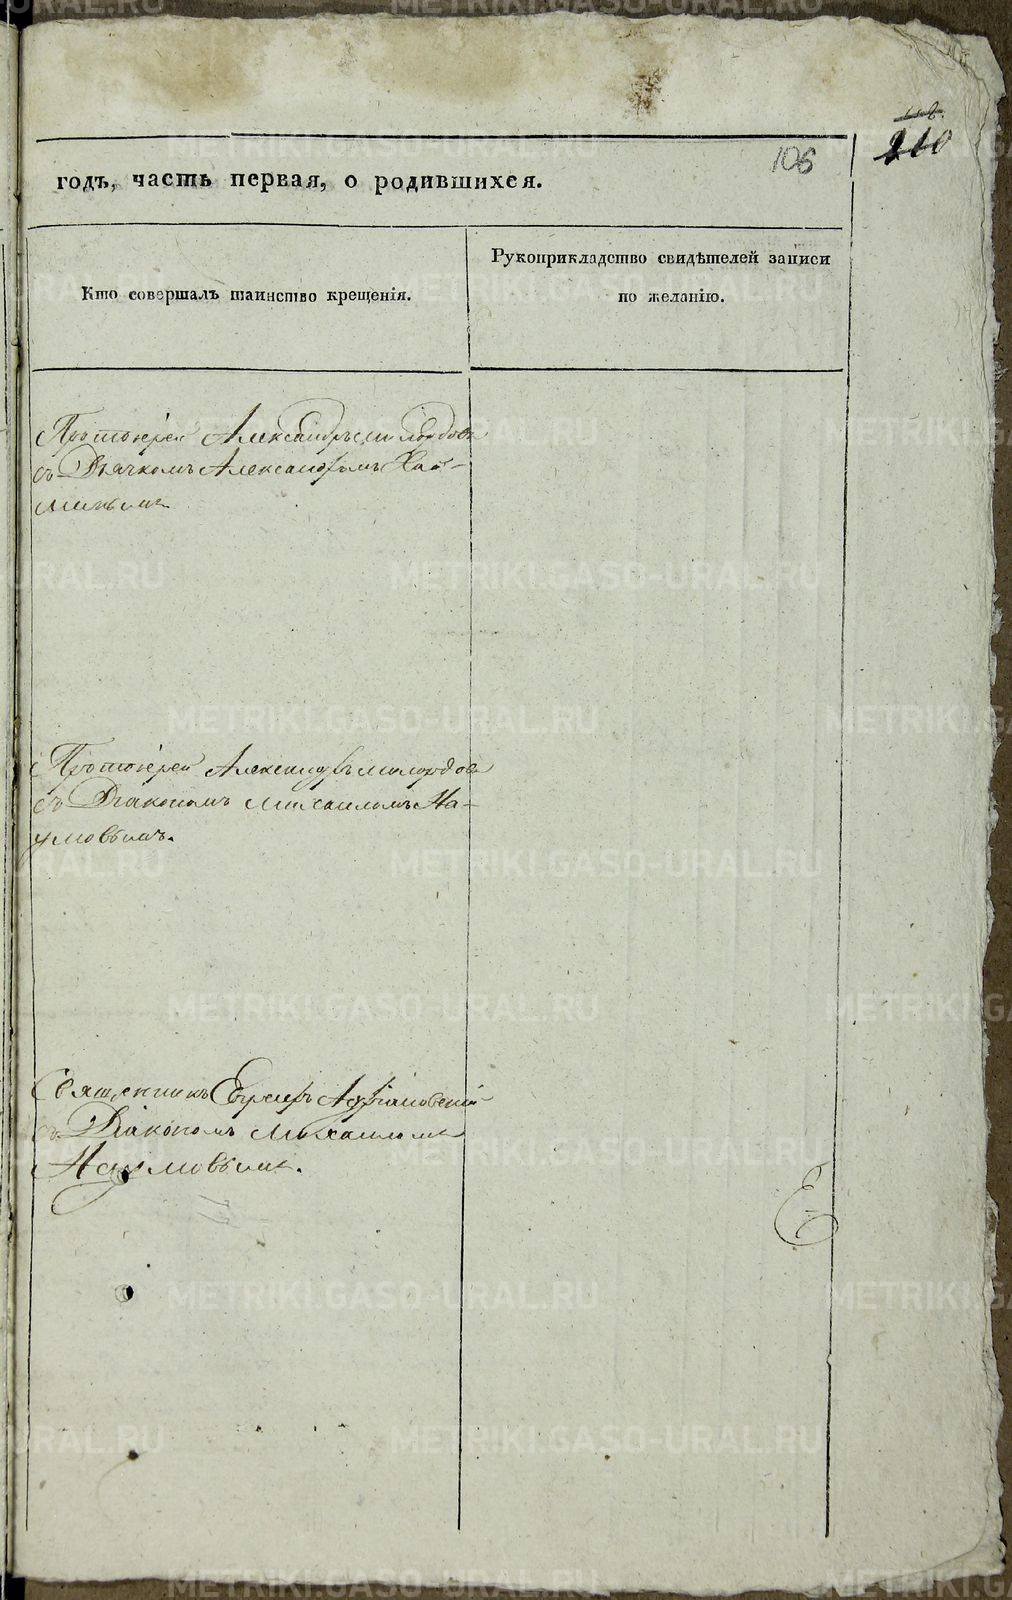 210
106
годъ, часть первая, о родившихся.
Кто совершалъ таинство крещенія.
Рукоприкладство свидѣтелей записи
по желанію.
Протоіерей Александръ Милордовъ
съ Дьячкомъ Александромъ Хой-
Протоіерей Александръ Милордовъ
съ Діакономъ Михаиломъ На-
умовымъ.
Священникъ
съ Діакономъ Михаиломъ
Наумовымъ.
METRIKI.GASO-URAL.RU